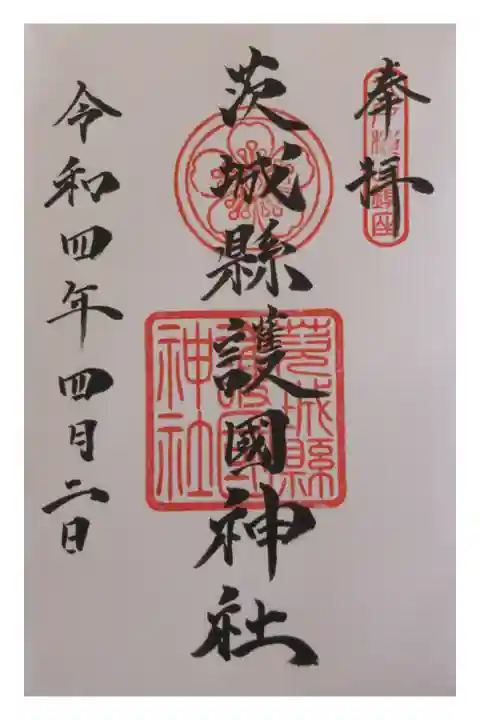 奉拝
茨城縣護國神社
令和四年四月二日
茨城縣
護國
神社